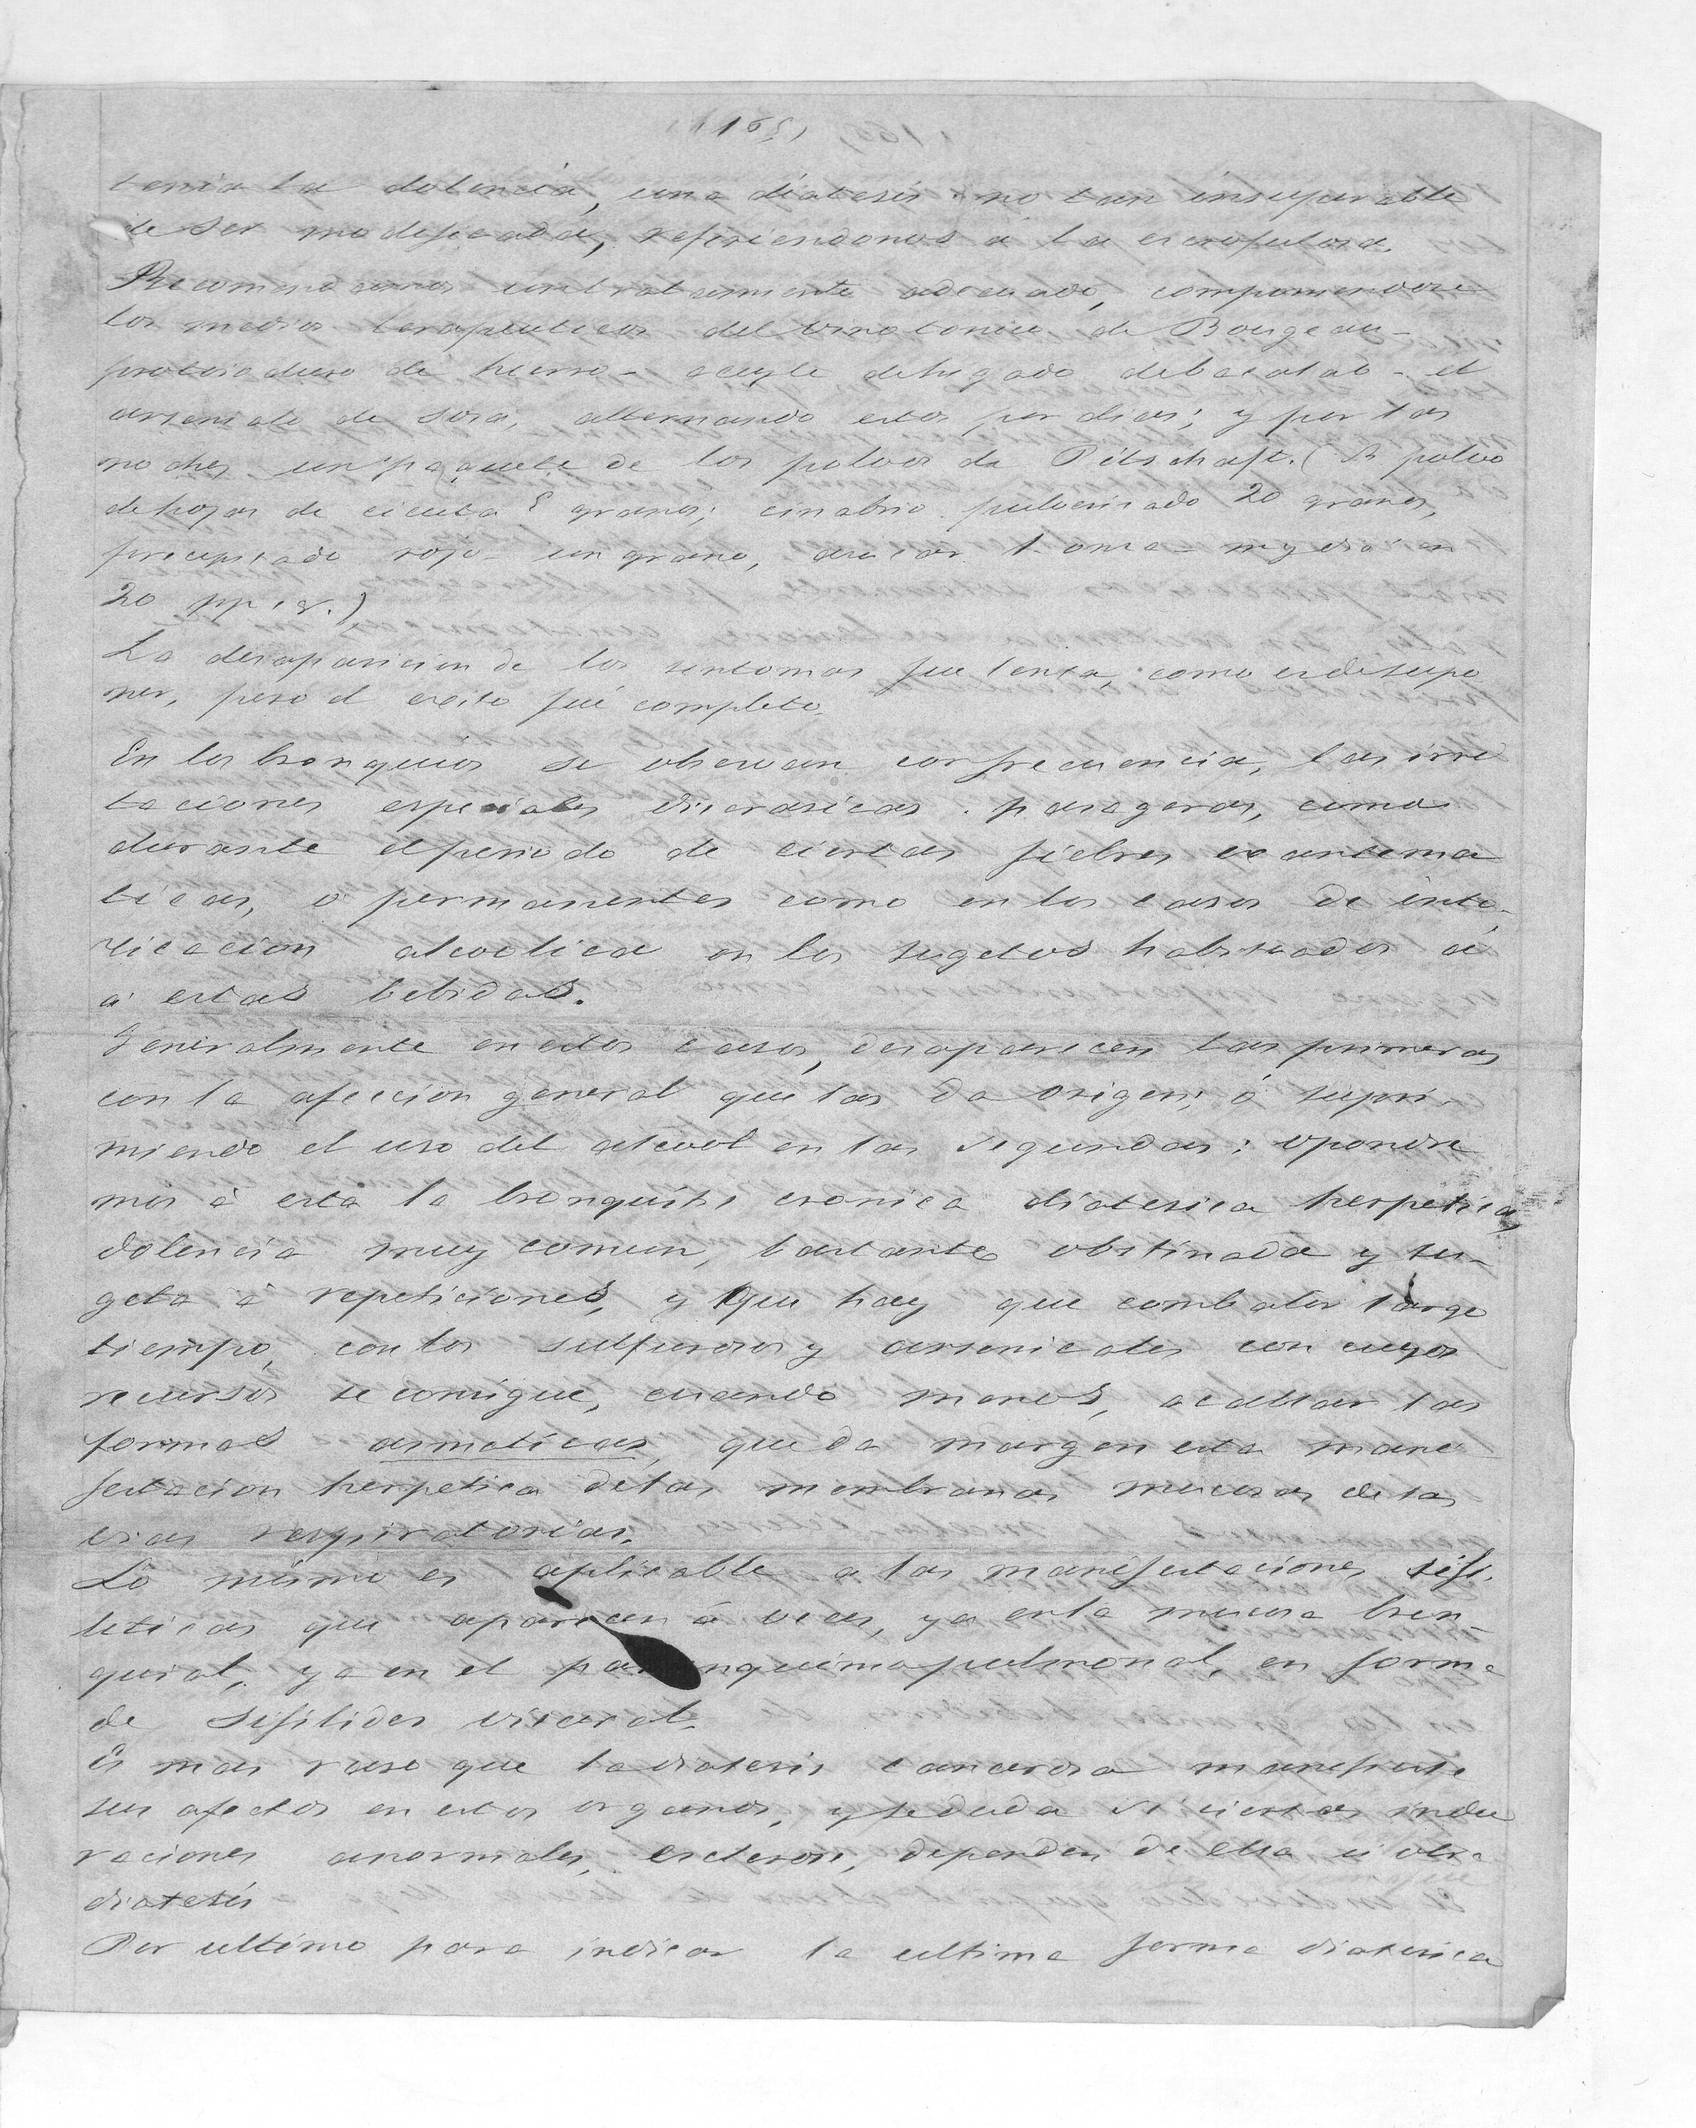 (165)
tenia la dolencia, una diatesis no tan insuperable
de ser modificada, refiriendonos á la escrofulosa.
Recomendamos un tratamiento adecuado, componiendose
los medios terapeuticos del vino tonico de Bougeau -
protoioduro de hierro - aceyte de higado de bacalao - el
arseniato de sosa, alternando estos por dias; y por las
noches un paquete de los polvos de Pitschaft. (R polvo
de hojas de cicuta 8 granos; cinabrio pulverisado 20 granos,
precipitado rojo un grano, asucar 1 onza - m y div en
20 pp. ig.)
La desaparicion de los sintomas fue lenta, como es de supo
ner, pero el exito fué completo.
En los bronquios se observan con frecuencia, las irri
taciones especiales discrasicas pasageras, como
durante el periodo de ciertas fiebres exantema
ticas, o permanentes como en los casos de into-
xicacion alcoolica en los sugetos habituados á
á estas bebidas.
Generalmente en estos casos, desaparecen las primeras
con la afeccion general que las da origen; ó supri-
miendo el uso del alcool en las segundas: opondre
mos á esta la bronquitis cronica diatesica herpetica,
dolencia muy comun, bastante obstinada y su-
geta á repeticiones, y que hay que combatir largo
tiempo, con los sulfurosos y arsenicales con cuyos
recursos se consigue, cuando menos, acallar las
formas asmaticas, que da margen esta mani
festacion herpetica de las membranas mucosas de las
vias respiratorias.
Lo mismo es aplicable a las manifestaciones sifi-
liticas que aparecen á veces, ya en la mucosa bron-
quial, ya en el parenquima pulmonal, en forma
de sifilides visceral.
Es mas raro que la diatesis cancerosa manifieste
sus afectos en estos organos, y se duda si ciertas indu
raciones anormales, esclerosis, dependen de esta ú otra
diatesis
Por ultimo para indicar la ultima forma diatesica